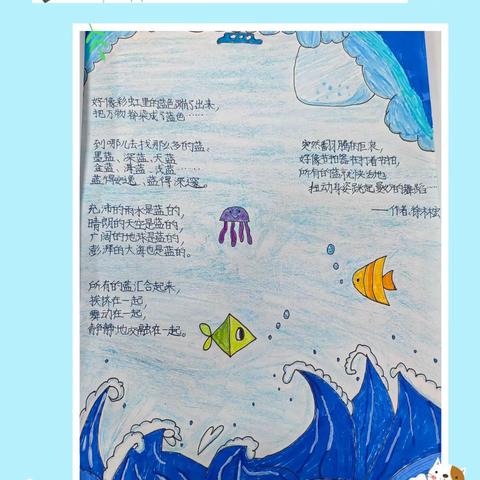 好像彩虹里的蓝色蹦了出来，
把万物都染成了蓝色……
到哪儿去找那么多的蓝：
墨蓝、深蓝、天蓝
蓝、湛蓝、浅蓝……
蓝得悠远、蓝得深邃。
充沛的雨水是蓝的，
晴朗的天空是蓝的，
广阔的地球是蓝的，
澎湃的大海也是蓝的。
所有的蓝汇合起来，
挨挤在一起，
舞动在一起，
静静地交融在一起。
突然翻腾的巨浪，
好像节拍器在打着节拍，
所有的蓝就快活地，
扭动身姿跳起曼妙的舞蹈……
——作者：徐